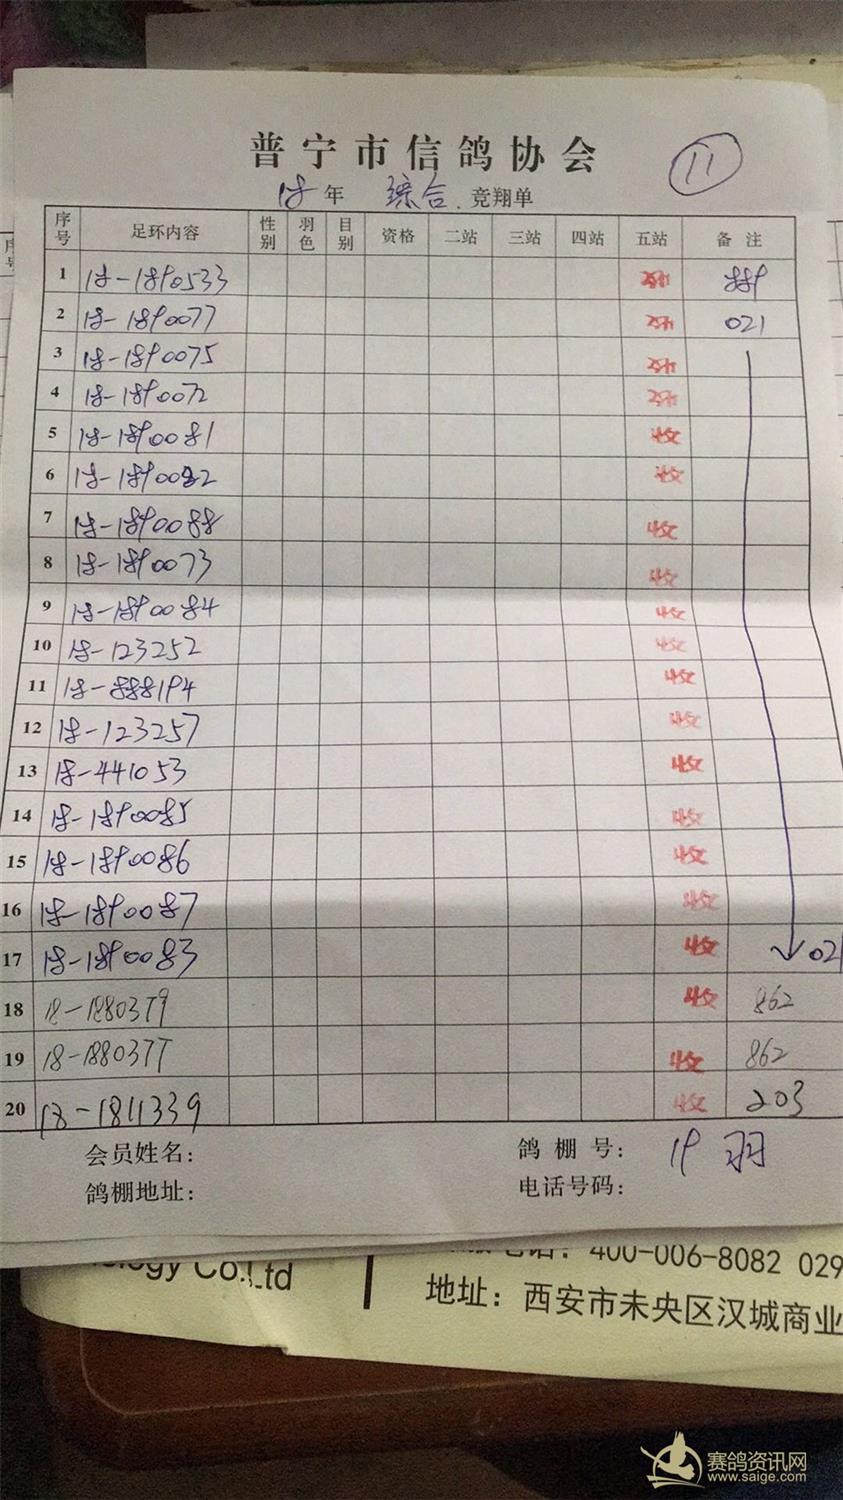 普宁市信鸽协会
11
18年 综合 竞翔单
序号 足环内容 性别 羽色 目别 资格 二站 三站 四站 五站 备 注
1 18-1890533 收 889
2 18-1890077 收 021
3 18-1890075 收
4 18-1890072 收
5 18-1890081 收
6 18-1890082 收
7 18-1890088 收
8 18-1890073 收
9 18-1890084 收
10 18-123252 收
11 18-888194 收
12 18-123257 收
13 18-441053 收
14 18-1890085 收
15 18-1890086 收
16 18-1890087 收
17 18-1890083 收 021
18 18-1880379 收 862
19 18-1880377 收 862
20 18-1811339 收 203
会员姓名: 鸽 棚 号: 19 羽
鸽棚地址: 电话号码:
电话: 400-006-8082 029
Co.Ltd
地址: 西安市未央区汉城商业
赛鸽资讯网
www.saige.com